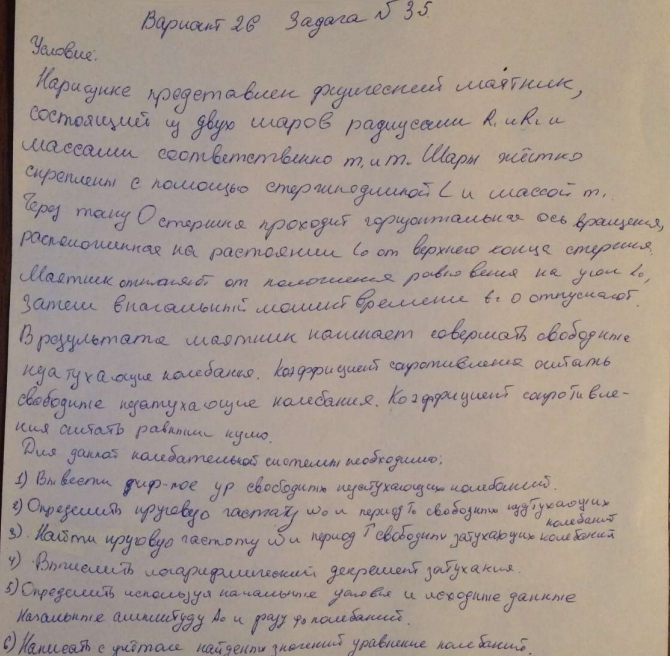 Вариант 26 Задача № 35
Условие:
На рисунке представлен физический маятник,
состоящий из двух шаров радиусами R₁ и R₂ и
массами соответственно m₁ и m₂. Шары жёстко
скреплены с помощью стержня длиной L и массой m.
Через точку O стержня проходит горизонтальная ось вращения,
расположенная на расстоянии l₀ от верхнего конца стержня.
Маятник отклоняют от положения равновесия на угол α₀,
затем в начальный момент времени t=0 отпускают.
В результате маятник начинает совершать свободные
незатухающие колебания. Коэффициент сопротивления считать
свободные незатухающие колебания. Коэффициент сопротивле-
ния считать равным нулю.
Для данной колебательной системы необходимо:
1) Вывести диф-ное ур свободных незатухающих колебаний.
2) Определить круговую частоту ω₀ и период T₀ свободных незатухающих
колебаний
3) Найти круговую частоту ω и период T свободных затухающих колебаний
4) Вычислить логарифмический декремент затухания.
5) Определить используя начальные условия и исходные данные
начальные амплитуду A₀ и фазу φ₀ колебаний.
6) Написать с учётом найденных значений уравнение колебаний.